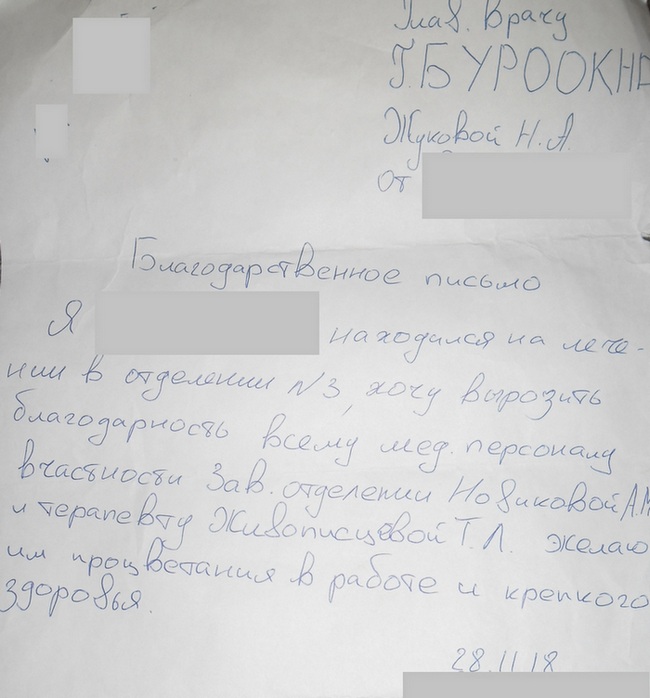 Глав. Врачу
Г.БУРООКНД
Жуковой Н.А.
От
Благодарственное письмо
Я находился на лече-
нии в отделении №3, хочу вырозить
благодарность всему мед. персоналу
вчастности Зав. отделении Новиковой А.М
и терапевту Живописцевой Т.Л. желаю
им процветания в работе и крепкого
здоровья.
28.11.18